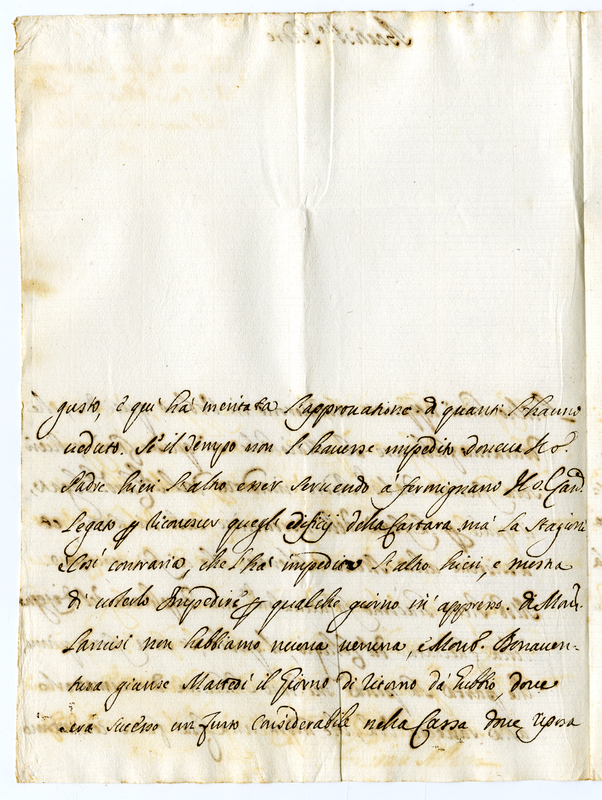 gusto, e qui hà meritata l'approuatione di quanti l'hanno
ueduto. Se il tempo non l'hauesse impedito doueua il Sig.
Padre hieri l'altro esser seruendo à fermignano il Sig. Card.
Legato per riconoscer quegli edificij della Cartara mà la stagione
così contraria, che l'hà impedito l'altro hieri, e mostra
di uolerlo impedire per qualche giorno in appresso. di Mons.
Lancisi non habbiamo nuoua ueruna, e Mons. Bonauen-
tura giunse Martedì il Giorno di ritorno dà Gubbio, doue
era sucesso un furto considerabile nella Cassa doue riposa